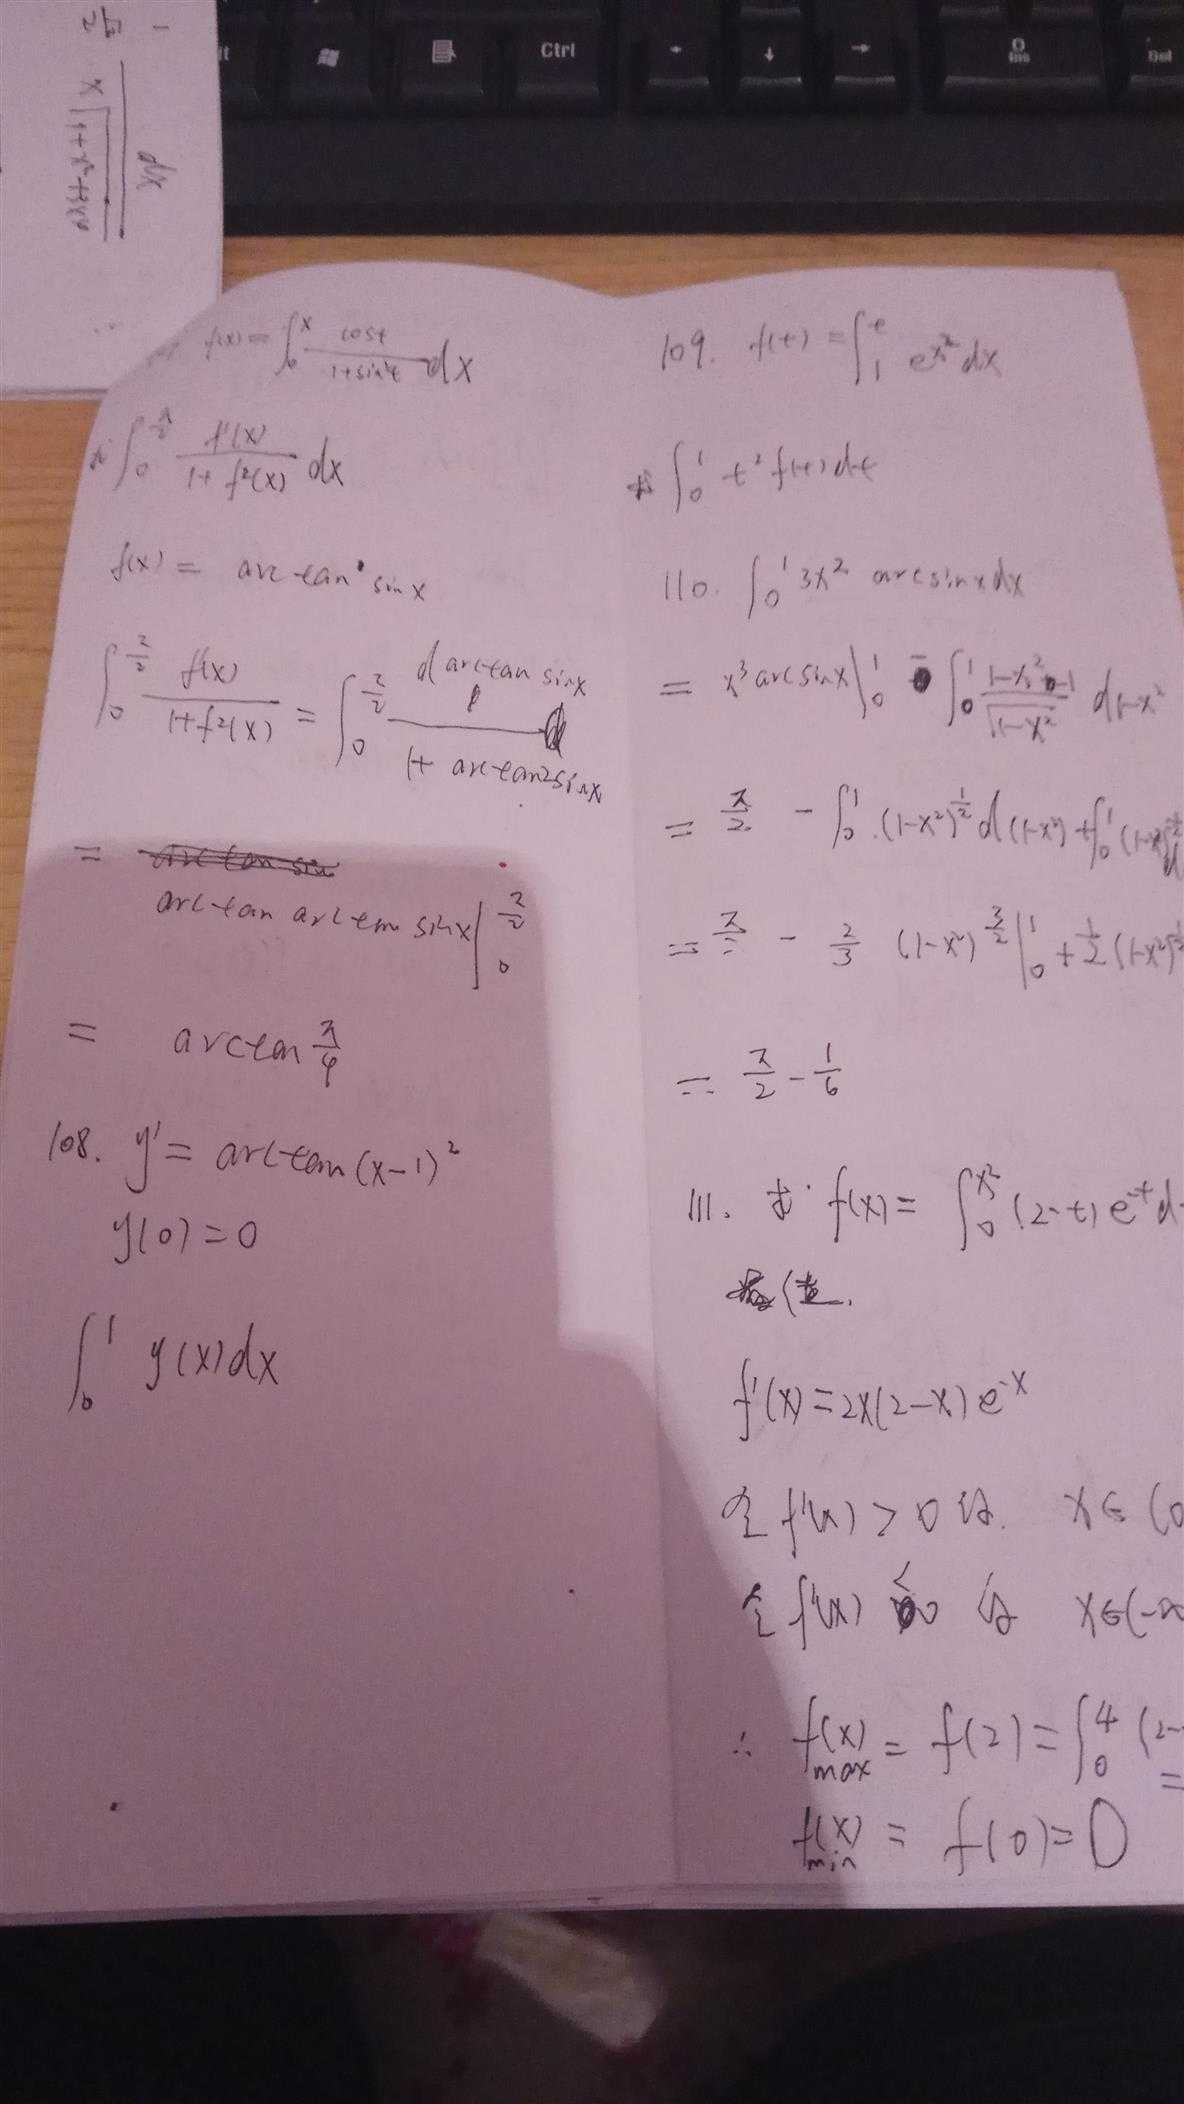 Ctrl
Ins
Del
dx
f(x) = ∫₀ˣ cost / (1+sin²t) dx
求 ∫₀^(π/2) f'(x) / (1+f²(x)) dx
f(x) = arctan sinx
∫₀^(π/2) f(x) / (1+f²(x)) = ∫₀^(π/2) d arctan sinx / (1+ arctan²sinx)
=
arctan arctan sinx |₀^(π/2)
= arctan π/4
108. y' = arctan(x-1)²
y(0)=0
∫₀¹ y(x)dx
109. f(t) = ∫₁ᵗ e^(x²) dx
求 ∫₀¹ t² f(t) dt
110. ∫₀¹ 3x² arcsinx dx
= x³ arcsinx |₀¹ - ∫₀¹ (1-x²-1) / √(1-x²) d1-x²
= π/2 - ∫₀¹ (1-x²)^(1/2) d(1-x²) + ∫₀¹ (1-x²)^(-1/2) d
= π/2 - 2/3 (1-x²)^(3/2) |₀¹ + 1/2 (1-x²)^(1/2)
= π/2 - 1/6
111. 求 f(x) = ∫₀^(x²) (2-t) e^(-t) d
最值.
f'(x) = 2x(2-x) e^(-x)
令 f'(x) > 0 得. x∈(0
令 f'(x) < 0 得 x∈(-∞
∴ f(x)max = f(2) = ∫₀⁴ (2-
=
f(x)min = f(0) = 0